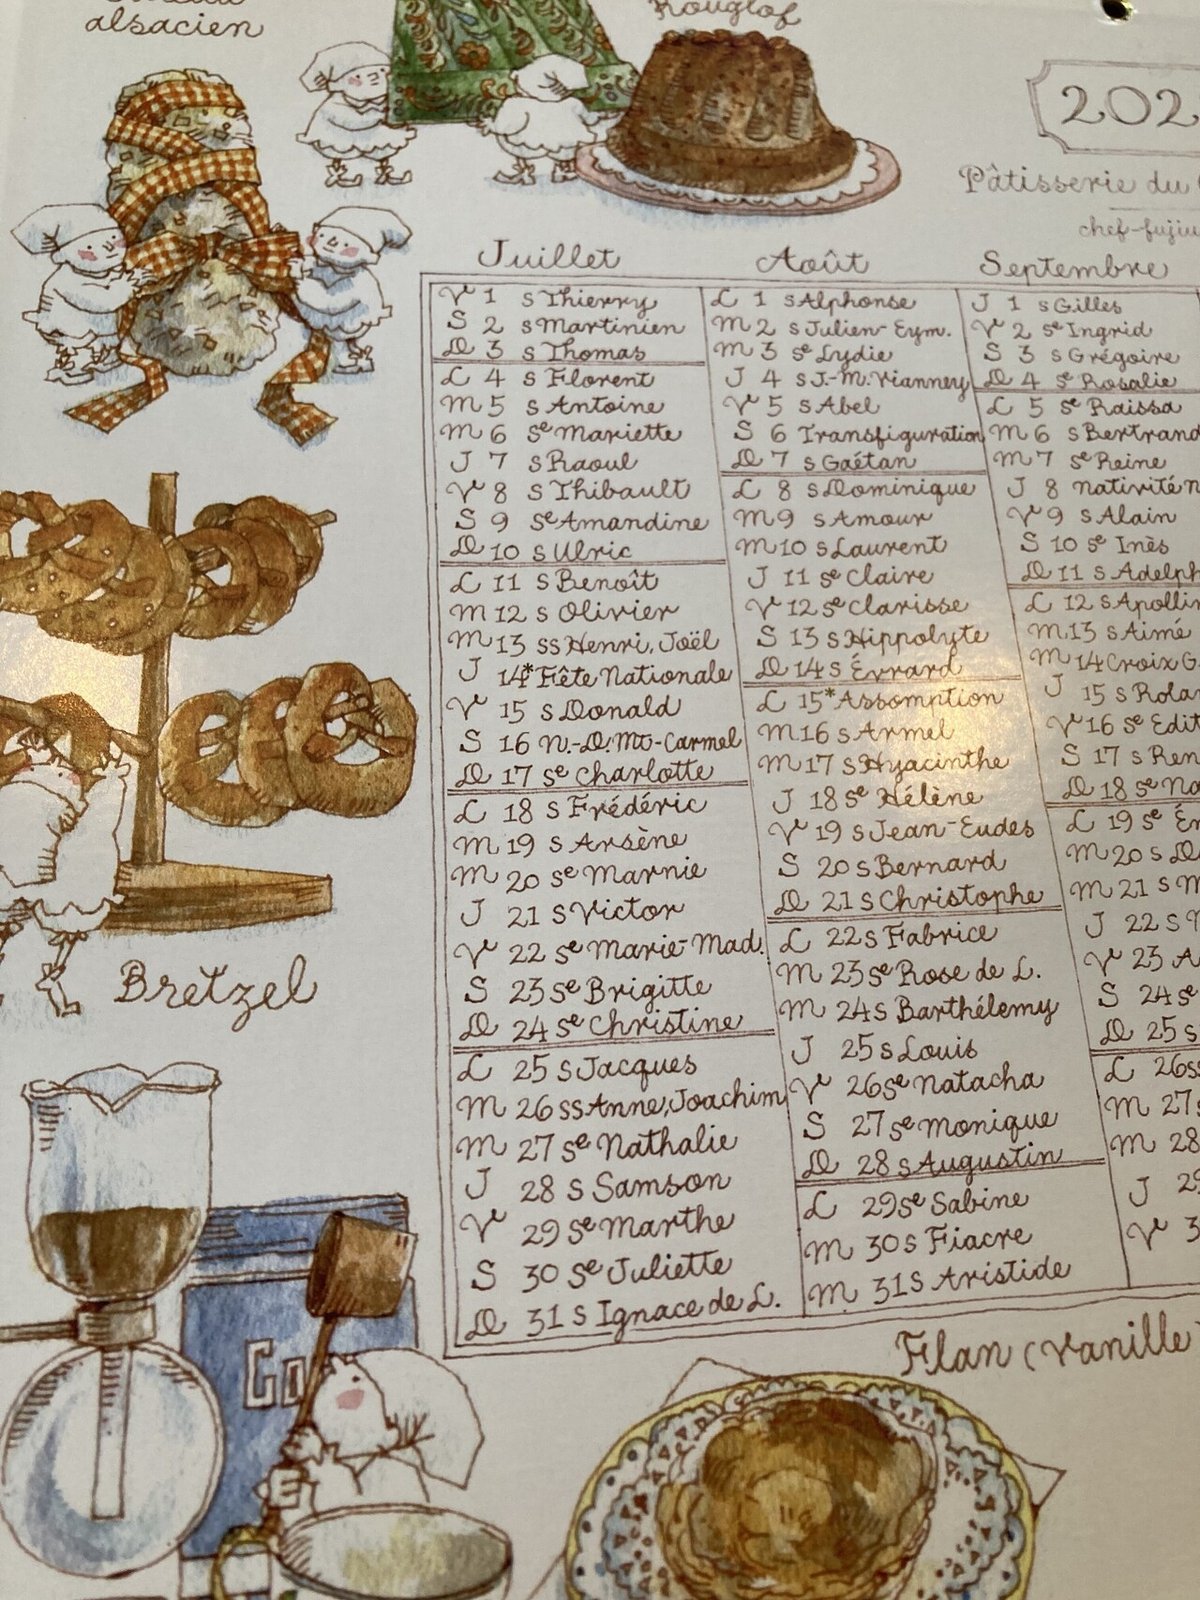 alsacien
Kouglof
202
Pâtisserie du
chef-fujiu
Juillet
V 1 s Thierry
S 2 s Martinien
D 3 s Thomas
L 4 s Florent
M 5 s Antoine
M 6 se Mariette
J 7 s Raoul
V 8 s Thibault
S 9 se Amandine
D 10 s Ulric
L 11 s Benoît
M 12 s Olivier
M 13 ss Henri, Joël
J 14* Fête Nationale
V 15 s Donald
S 16 N.-D. Mt-Carmel
D 17 se Charlotte
L 18 s Frédéric
M 19 s Arsène
M 20 se Marnie
J 21 s Victor
V 22 se Marie-Mad.
S 23 se Brigitte
D 24 se Christine
L 25 s Jacques
M 26 ss Anne, Joachim
M 27 se Nathalie
J 28 s Samson
V 29 se Marthe
S 30 se Juliette
D 31 s Ignace de L.
Août
L 1 s Alphonse
M 2 s Julien-Eym.
M 3 se Lydie
J 4 s J.-M. Vianney
V 5 s Abel
S 6 Transfiguration
D 7 s Gaétan
L 8 s Dominique
M 9 s Amour
M 10 s Laurent
J 11 se Claire
V 12 se Clarisse
S 13 s Hippolyte
D 14 s Évrard
L 15* Assomption
M 16 s Armel
M 17 s Hyacinthe
J 18 se Hélène
V 19 s Jean-Eudes
S 20 s Bernard
D 21 s Christophe
L 22 s Fabrice
M 23 se Rose de L.
M 24 s Barthélemy
J 25 s Louis
V 26 se Natacha
S 27 se Monique
D 28 s Augustin
L 29 se Sabine
M 30 s Fiacre
M 31 s Aristide
Septembre
J 1 s Gilles
V 2 se Ingrid
S 3 s Grégoire
D 4 se Rosalie
L 5 se Raissa
M 6 s Bertrand
M 7 se Reine
J 8 Nativité N
V 9 s Alain
S 10 se Inès
D 11 s Adelph
L 12 s Apollin
M 13 s Aimé
M 14 Croix G
J 15 s Rola
V 16 se Edit
S 17 s Ren
D 18 se Na
L 19 se Ém
M 20 s D
M 21 s M
J 22 s
V 23 A
S 24 se
D 25 s
L 26 ss
M 27 s
M 28
J 29
V 3
Bretzel
Co
Flan (Vanille)